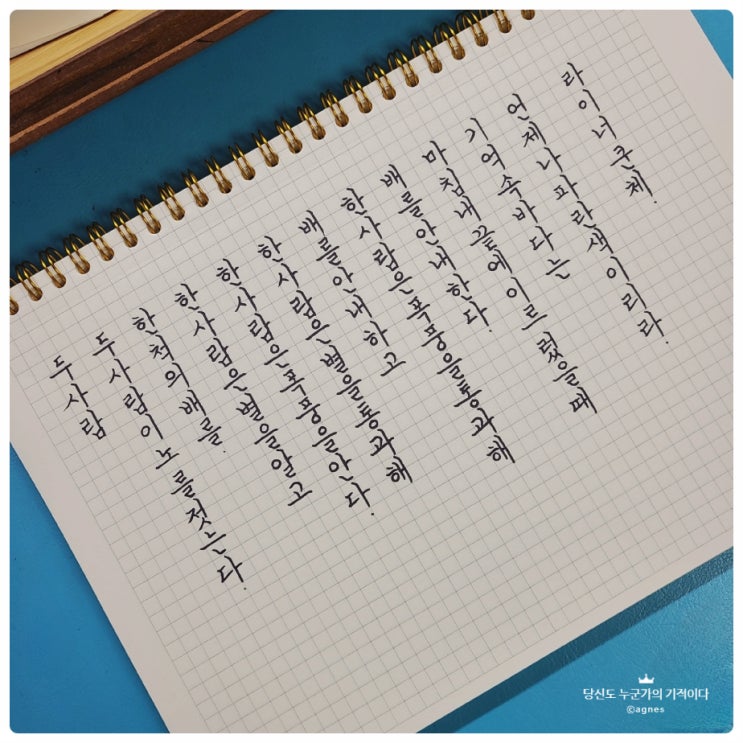 두 사람
두 사람이 노를 젓는다.
한 척의 배를.
한 사람은 별을 알고
한 사람은 폭풍을 안다.
한 사람은 별을 통과해
배를 안내하고
한 사람은 폭풍을 통과해
배를 안내한다.
마침내 끝에 이르렀을 때
기억 속 바다는
언제나 파란색이리라.
라이너 쿤체.
당신도 누군가의 기적이다
©agnes